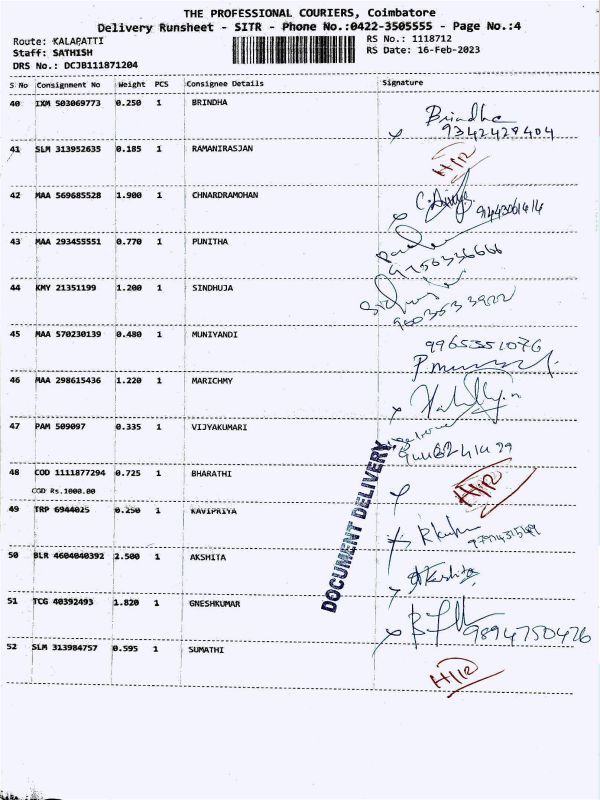 THE PROFESSIONAL COURIERS, Coimbatore
Delivery Runsheet - SITR - Phone No.:0422-3505555 - Page No.:4
Route: KALAPATTI RS No.: 1118712
Staff: SATHISH RS Date: 16-Feb-2023
DRS No.: DCJB111871204
S No Consignment No Weight PCS Consignee Details Signature
40 IXM 503069773 0.250 1 BRINDHA Brindha
9342428404
41 SLM 313952635 0.185 1 RAMANIRASJAN H/12
42 MAA 569685528 1.900 1 CHNARDRAMOHAN
43 MAA 293455551 0.770 1 PUNITHA
9756336666
44 KMY 21351199 1.200 1 SINDHUJA
9003533922
45 MAA 570230139 0.480 1 MUNIYANDI 9965351076
46 MAA 298615436 1.220 1 MARICHMY
47 PAM 509097 0.335 1 VIJYAKUMARI
48 COD 1111877294 0.725 1 BHARATHI H/12
COD Rs.1000.00
49 TRP 6944025 0.250 1 KAVIPRIYA
50 BLR 4604040392 2.500 1 AKSHITA Akshita
51 TCG 40392493 1.820 1 GNESHKUMAR 9894750426
52 SLM 313984757 0.595 1 SUMATHI H/12
DOCUMENT DELIVERY